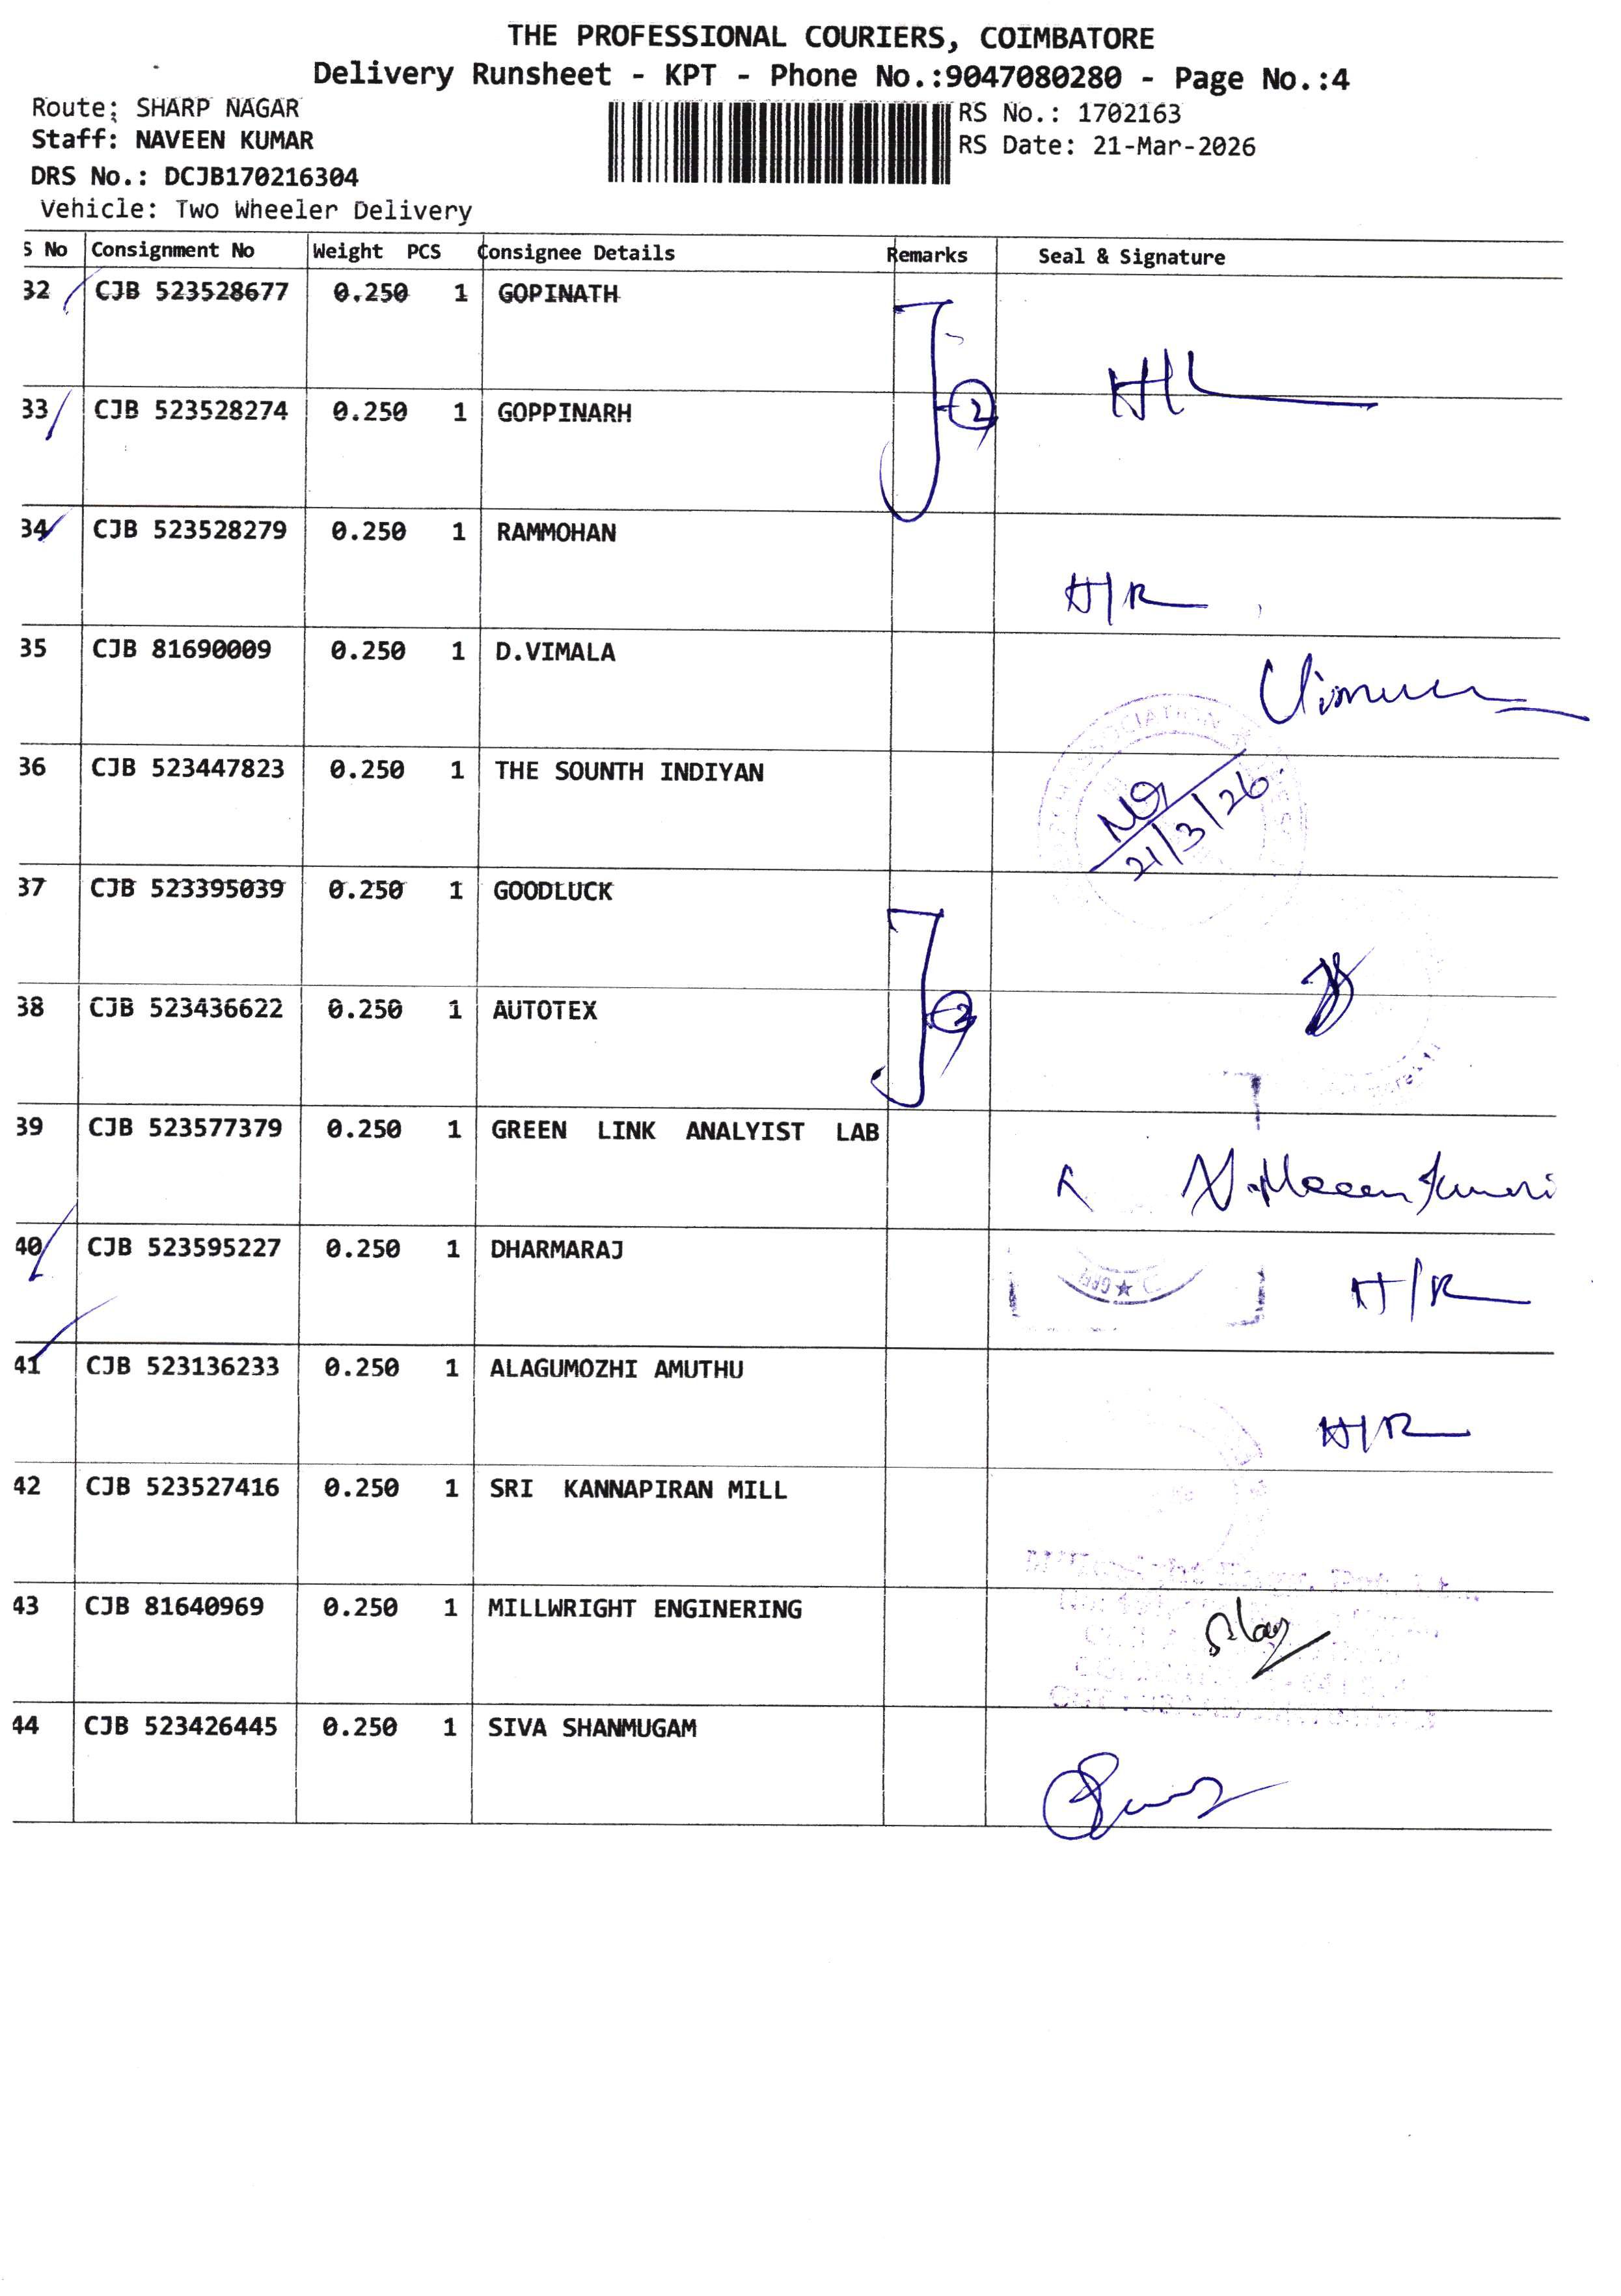 THE PROFESSIONAL COURIERS, COIMBATORE
Delivery Runsheet - KPT - Phone No.:9047080280 - Page No.:4
Route: SHARP NAGAR
RS No.: 1702163
Staff: NAVEEN KUMAR
RS Date: 21-Mar-2026
DRS No.: DCJB170216304
Vehicle: Two Wheeler Delivery
S No Consignment No Weight PCS Consignee Details Remarks Seal & Signature
32 CJB 523528677 0.250 1 GOPINATH
33 CJB 523528274 0.250 1 GOPPINARH
2
34 CJB 523528279 0.250 1 RAMMOHAN
H/R
35 CJB 81690009 0.250 1 D.VIMALA
36 CJB 523447823 0.250 1 THE SOUNTH INDIYAN
21/3/26
37 CJB 523395039 0.250 1 GOODLUCK
38 CJB 523436622 0.250 1 AUTOTEX
2
39 CJB 523577379 0.250 1 GREEN LINK ANALYIST LAB
40 CJB 523595227 0.250 1 DHARMARAJ
H/R
41 CJB 523136233 0.250 1 ALAGUMOZHI AMUTHU
H/R
42 CJB 523527416 0.250 1 SRI KANNAPIRAN MILL
43 CJB 81640969 0.250 1 MILLWRIGHT ENGINERING
44 CJB 523426445 0.250 1 SIVA SHANMUGAM